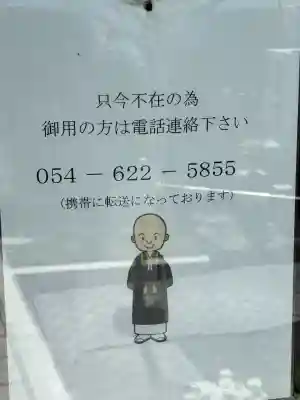 只今不在の為
御用の方は電話連絡下さい
054－622－5855
（携帯に転送になっております）